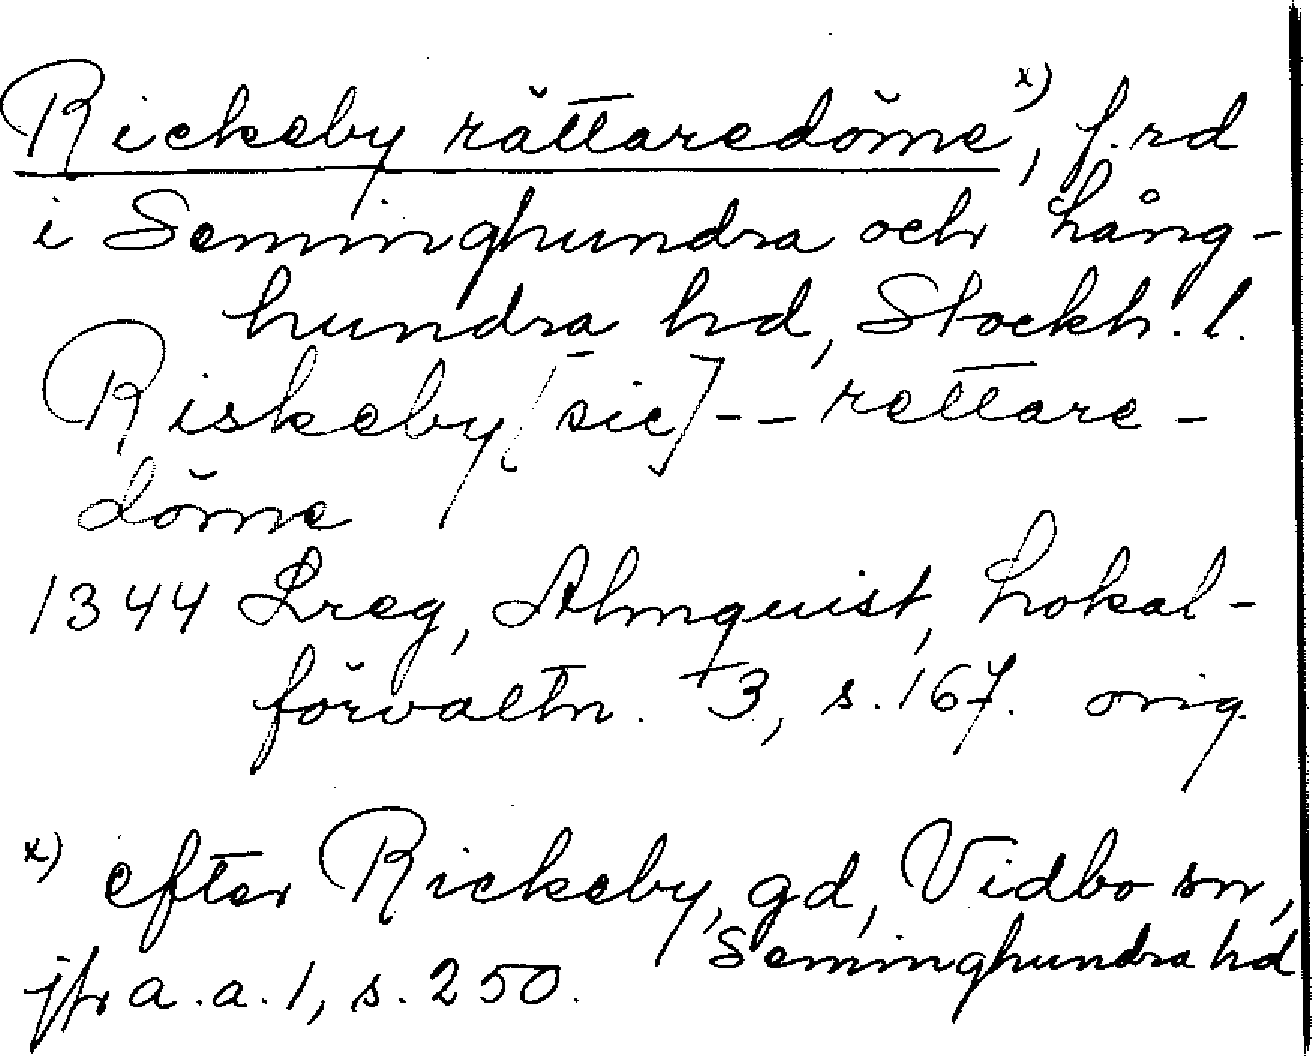 Rickeby rättaredöme x), f.rd
i Seminghundra och Lång-
hundra hd, Stockh. l.
Riskeby [sic] -- rettare-
döme
1344 Lreg, Almquist, Lokal-
förvaltn. 3, s. 167. orig.
x) efter Rickeby, gd, Vidbo sn,
Seminghundra hd
jfr a.a. 1, s. 250.